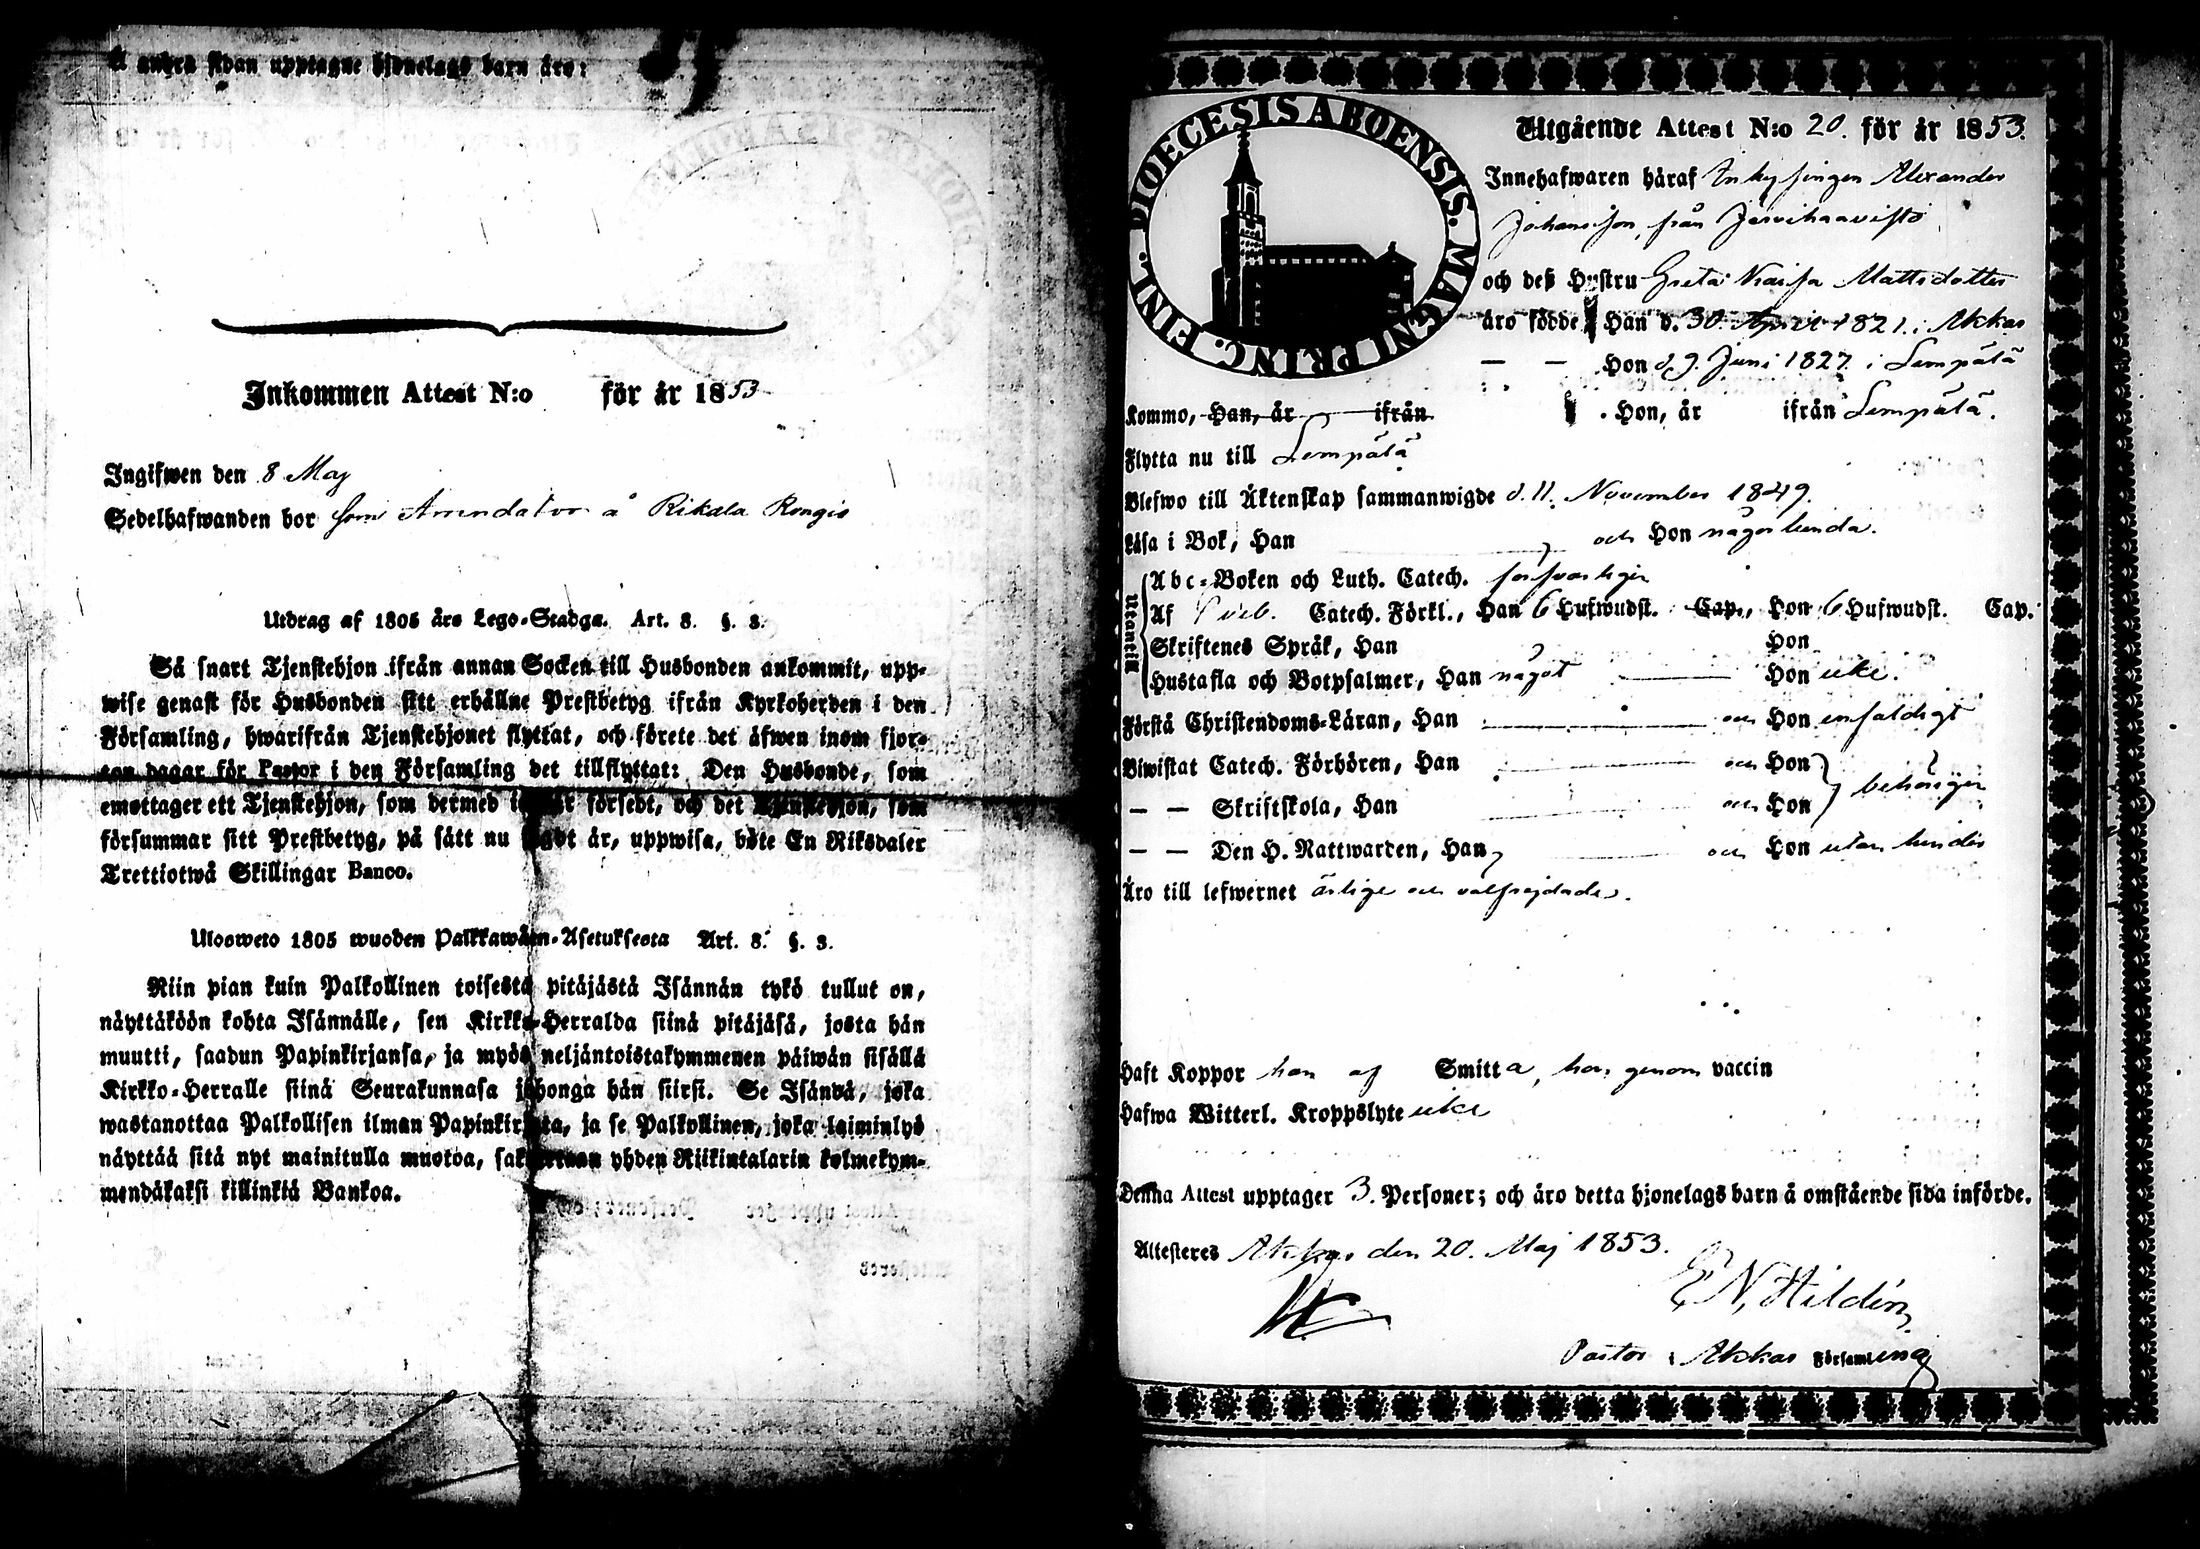 å andra sidan upptagne hjonelags barn äro:
Inkommen Attest N:o för år 1853
Ingifwen den 8 Maj
Sedelhafwanden bor som Arrendator å Rikala Rongis
Utdrag af 1805 års Lego-Stadga. Art. 8. §. 3.
Så snart Tjenstehjon ifrån annan Socken till Husbonden ankommit, upp-
wise genast för Husbonden sitt erhållne Prestbetyg ifrån Kyrkoherden i den
Församling, hwarifrån Tjenstehjonet flyttat, och förete det äfwen inom fjor-
ton dagar för Pastor i den Församling det tillflyttat: Den Husbonde, som
emottager ett Tjenstehjon, som dermed icke är försedt, och det Tjenstehjon, som
försummar sitt Prestbetyg, på sätt nu sagdt är, uppwisa, böte En Riksdaler
Trettiotwå Skillingar Banco.
Ulosweto 1805 wuoden Palkkawäen-Asetuksesta Art. 8. §. 3.
Niin pian kuin Palkollinen toisesta pitäjästä Isännän tykö tullut on,
näyttäköön kohta Isännälle, sen Kirkko-Herralda siinä pitäjäsä, josta hän
muutti, saadun Papinkirjansa, ja myös neljäntoistakymmenen päiwän sisällä
Kirkko-Herralle siinä Seurakunnasa johonga hän siirsi. Se Isändä, joka
wastanottaa Palkollisen ilman Papinkirjata, ja se Palkollinen, joka laiminlyö
näyttää sitä nyt mainitulla muotoa, sakoitetaan yhden Riikintalarin kolmekym-
mendäkaksi killinkiä Bankoa.
DIOECESIS ABOENSIS. MAGNI PRINC. FINL.
Utgående Attest N:o 20. för år 1853.
Innehafwaren häraf Inhysingen Alexander
Johansson, från Järvihaavisto
och deß Hustru Greta Kaisa Mattsdotter
äro födde Han d. 30 April 1821. i Akkas
— — Hon d 9. Juni 1827. i Lempälä
Kommo, Han, år ifrån Hon, år ifrån Lempälä.
Flytta nu till Lempälä
Blefwo till Äktenskap sammanwigde d. 11. November 1849.
Läsa i Bok, Han och Hon någorlunda.
Utantill
Abc-Boken och Luth. Catech. försvarligen
Af Catech. Förkl., Han 6 Hufwudst. Cap., Hon 6 Hufwudst. Cap.
Skriftenes Språk, Han Hon
Hustafla och Botpsalmer, Han något Hon icke.
Förstå Christendoms-Läran, Han och Hon enfaldigt
Biwistat Catech. Förhören, Han och Hon
— — Skriftskola, Han och Hon behörigen
— — Den H. Nattwarden, Han och Hon utan hinder
Äro till lefwernet ärlige och välfrejdade.
Haft Koppor han af Smitta, hon genom vaccin
Hafwa Witterl. Kroppslyte icke
Denna Attest upptager 3. Personer; och äro detta hjonelags barn å omstående sida införde.
Attesteres Akkas den 20. Maj 1853.
E N. Hildén,
Pastor i Akkas Församling